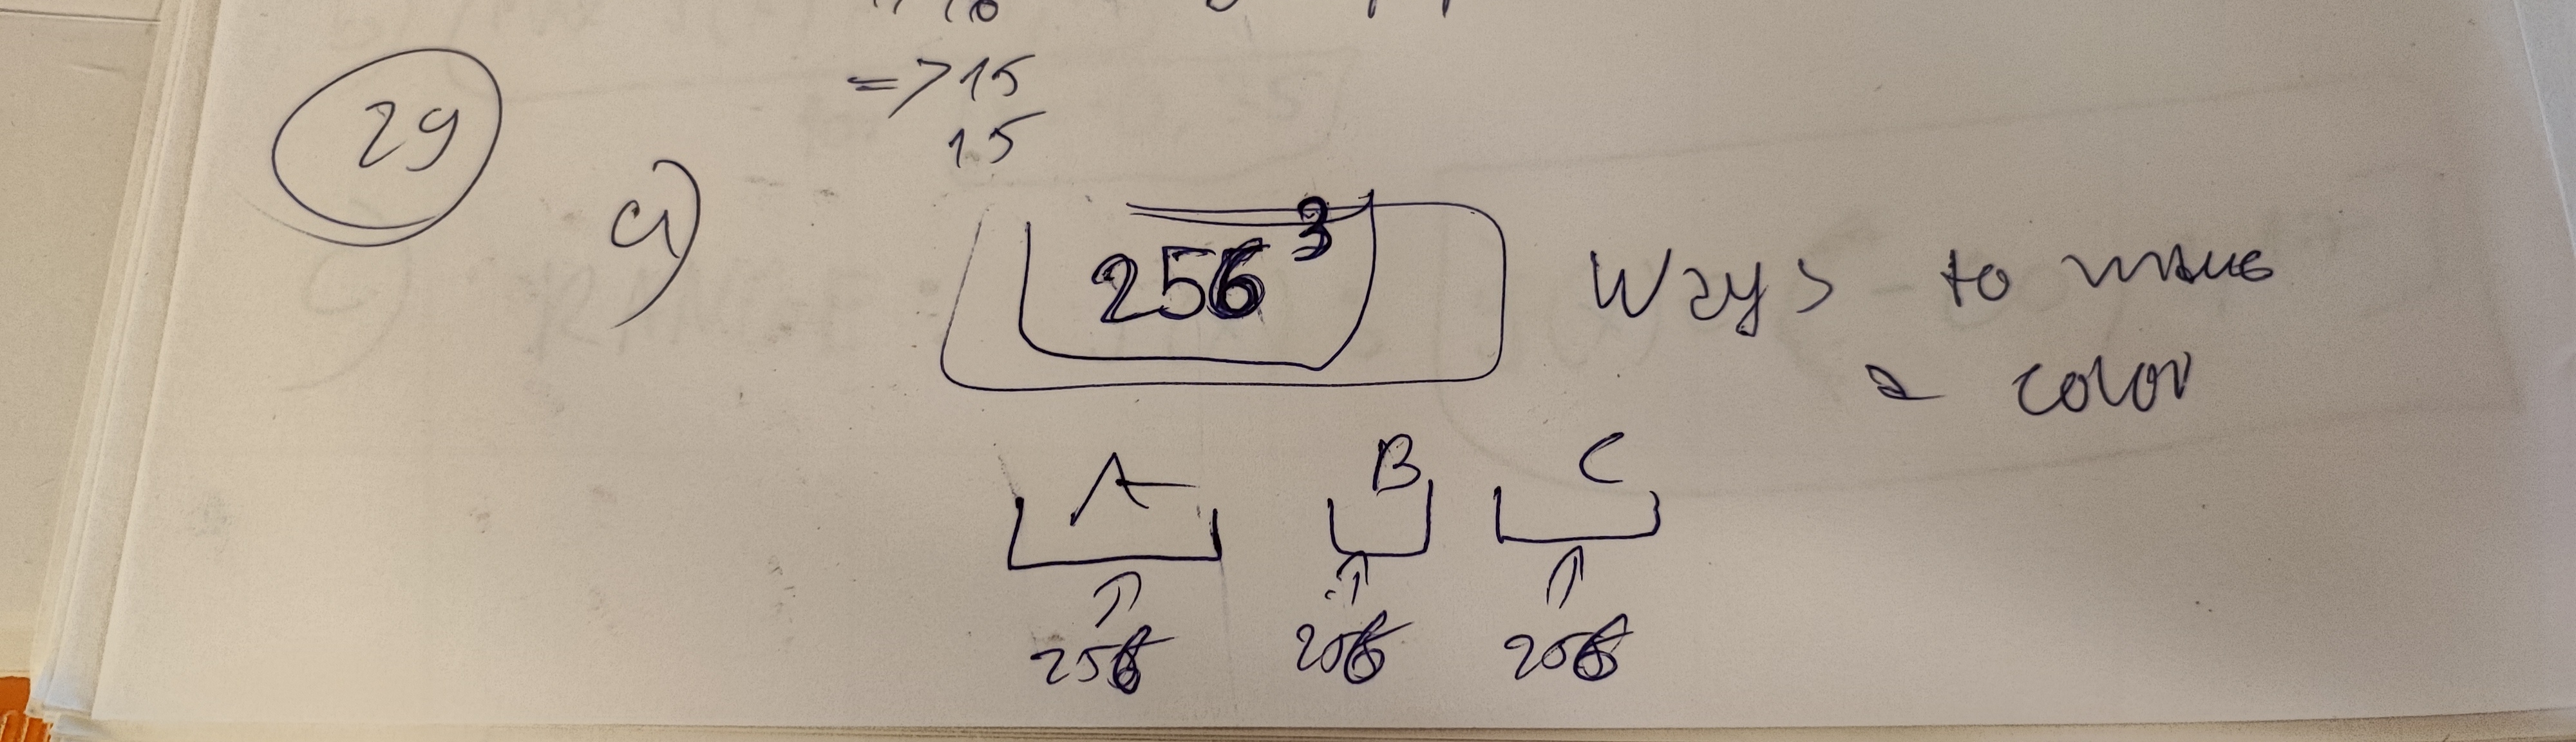 => 15
15
29
a)
256³ Ways to make
a color
A B C
256 256 256